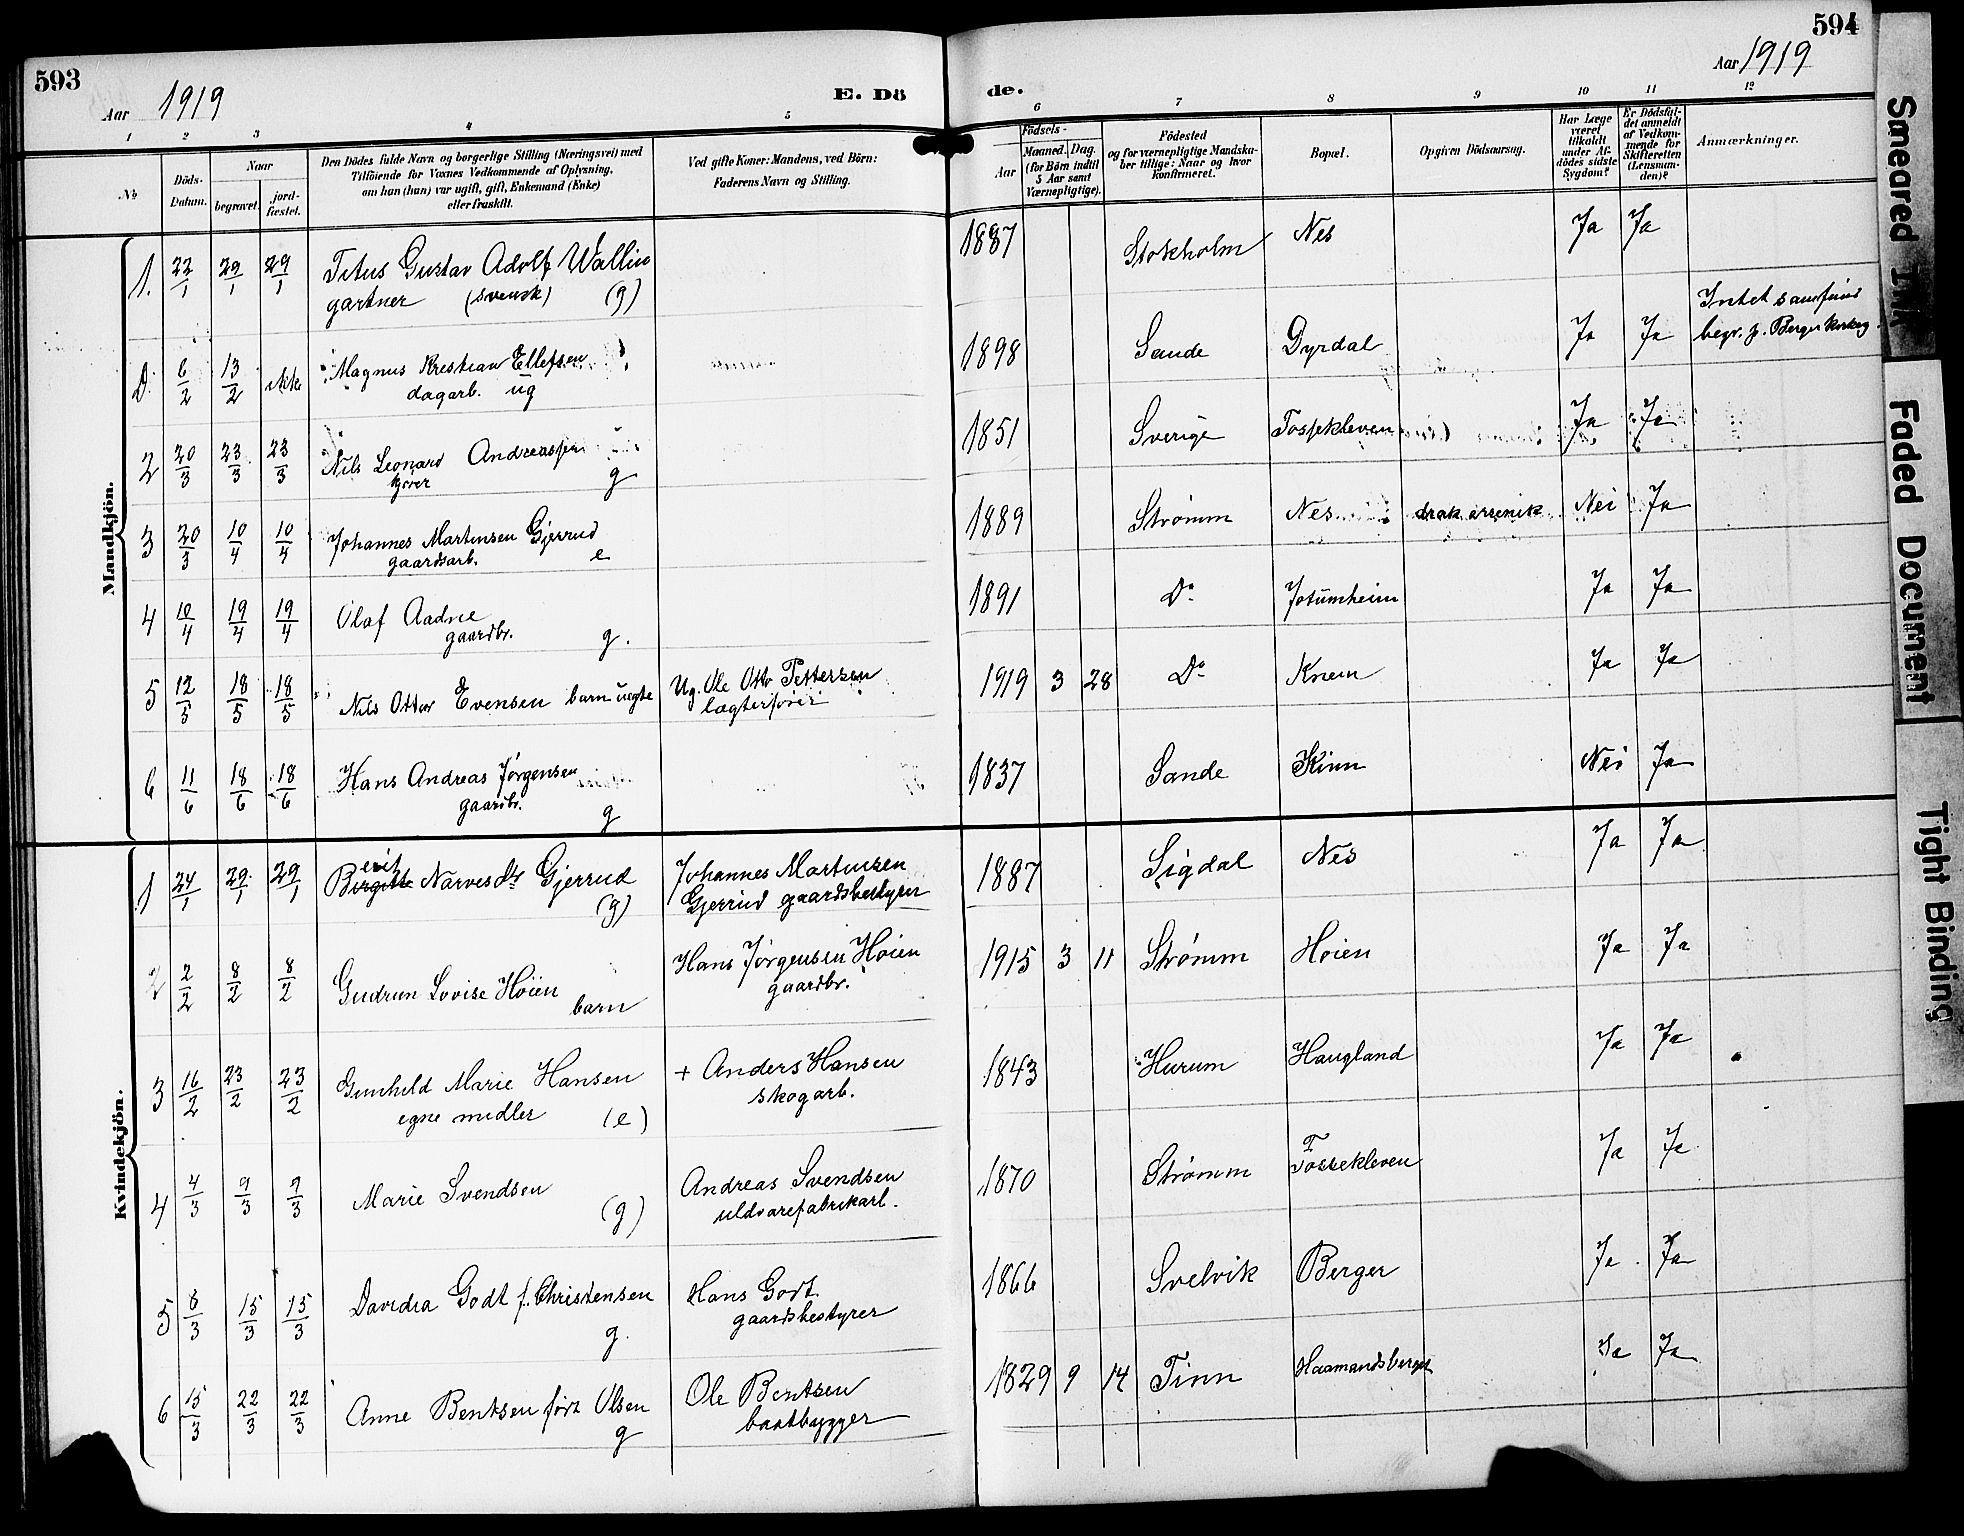 593
Aar 1919
E. Dö
1 2 3 4 5
No
Döds-Datum.
Naar
begravet.
jord-fæstet.
Den Dödes fulde Navn og borgerlige Stilling (Næringsvei) med
Tilföiende for Voxnes Vedkommende af Oplysning,
om han (hun) var ugift, gift, Enkemand (Enke)
eller fraskilt.
Ved gifte Koner: Mandens, ved Börn:
Faderens Navn og Stilling.
Mandkjön.
1. 22/1 29/1 29/1 Titus Gustav Adolf Wallin
gartner (svensk) (g)
D. 6/2 13/2 ikke Magnus Kristian Ellefsen
dagarb. ug
2 20/3 23/3 23/3 Nils Leonard Andreassen
kjører g
3 20/3 10/4 10/4 Johannes Martinsen Gjerrud
gaardsarb. e
4 10/4 19/4 19/4 Olaf Aadne
gaardbr. g.
5 12/5 18/5 18/5 Nils Ottar Evensen barn uegte Ug. Ole Otto Pettersen
lægterfører
6 11/6 18/6 18/6 Hans Andreas Jørgensen
gaardbr. g
Kvindekjön.
1 24/1 29/1 29/1 Birgitte erit Narvesdtr Gjerrud (g) Johannes Martinsen
Gjerrud gaardsbestyrer
2 2/2 8/2 8/2 Gudrun Lovise Høien
barn Hans Jørgensen Høien
gaardbr.
3 16/2 23/2 23/2 Gunhild Marie Hansen
egne midler (e) + Anders Hansen
skogarb.
4 4/3 9/3 9/3 Marie Svendsen (g) Andreas Svendsen
uldvarefabrikarb.
5 8/3 15/3 15/3 Davidia Godt f. Christensen
g. Hans Godt
gaardsbestyrer
6 15/3 22/3 22/3 Anne Bentsen født Olsen
g Ole Bentsen
baatbygger
594
Aar 1919
de.
6 7 8 9 10 11 12
Födsels-
Aar
Maaned. Dag.
(for Börn indtil
5 Aar samt
Værnepligtige).
Födested
og for værnepligtige Mandska-
ber tillige: Naar og hvor
konfirmeret.
Bopæl.
Opgiven Dödsaarsag.
Har Læge
været
tilkaldt
under Af-
dödes sidste
Sygdom?
Er Dödsfal-
det anmeldt
af Vedkom-
mende for
Skifteretten
(Lensman-
den)?
Anmærkninger.
1887 Stokholm Nes Ja Ja
1898 Sande Dyrdal Ja Ja Intet samfund
begr. p. Berger kirkeg.
1851 Sverige Fossekleven Ja Ja
1889 Strømm Nes drak arsenik Nei Ja
1891 Do Jotumheim Ja Ja
1919 3 28 Do Knem Ja Ja
1837 Sande Kinn Nei Ja
1887 Sigdal Nes Ja Ja
1915 3 11 Strømm Høien Ja Ja
1843 Hurum Haugland Ja Ja
1870 Strømm Fossekleven Ja Ja
1866 Svelvik Berger Ja Ja
1829 9 14 Tinn Haamandsberget Ja Ja
Smeared Ink
Faded Document
Tight Binding